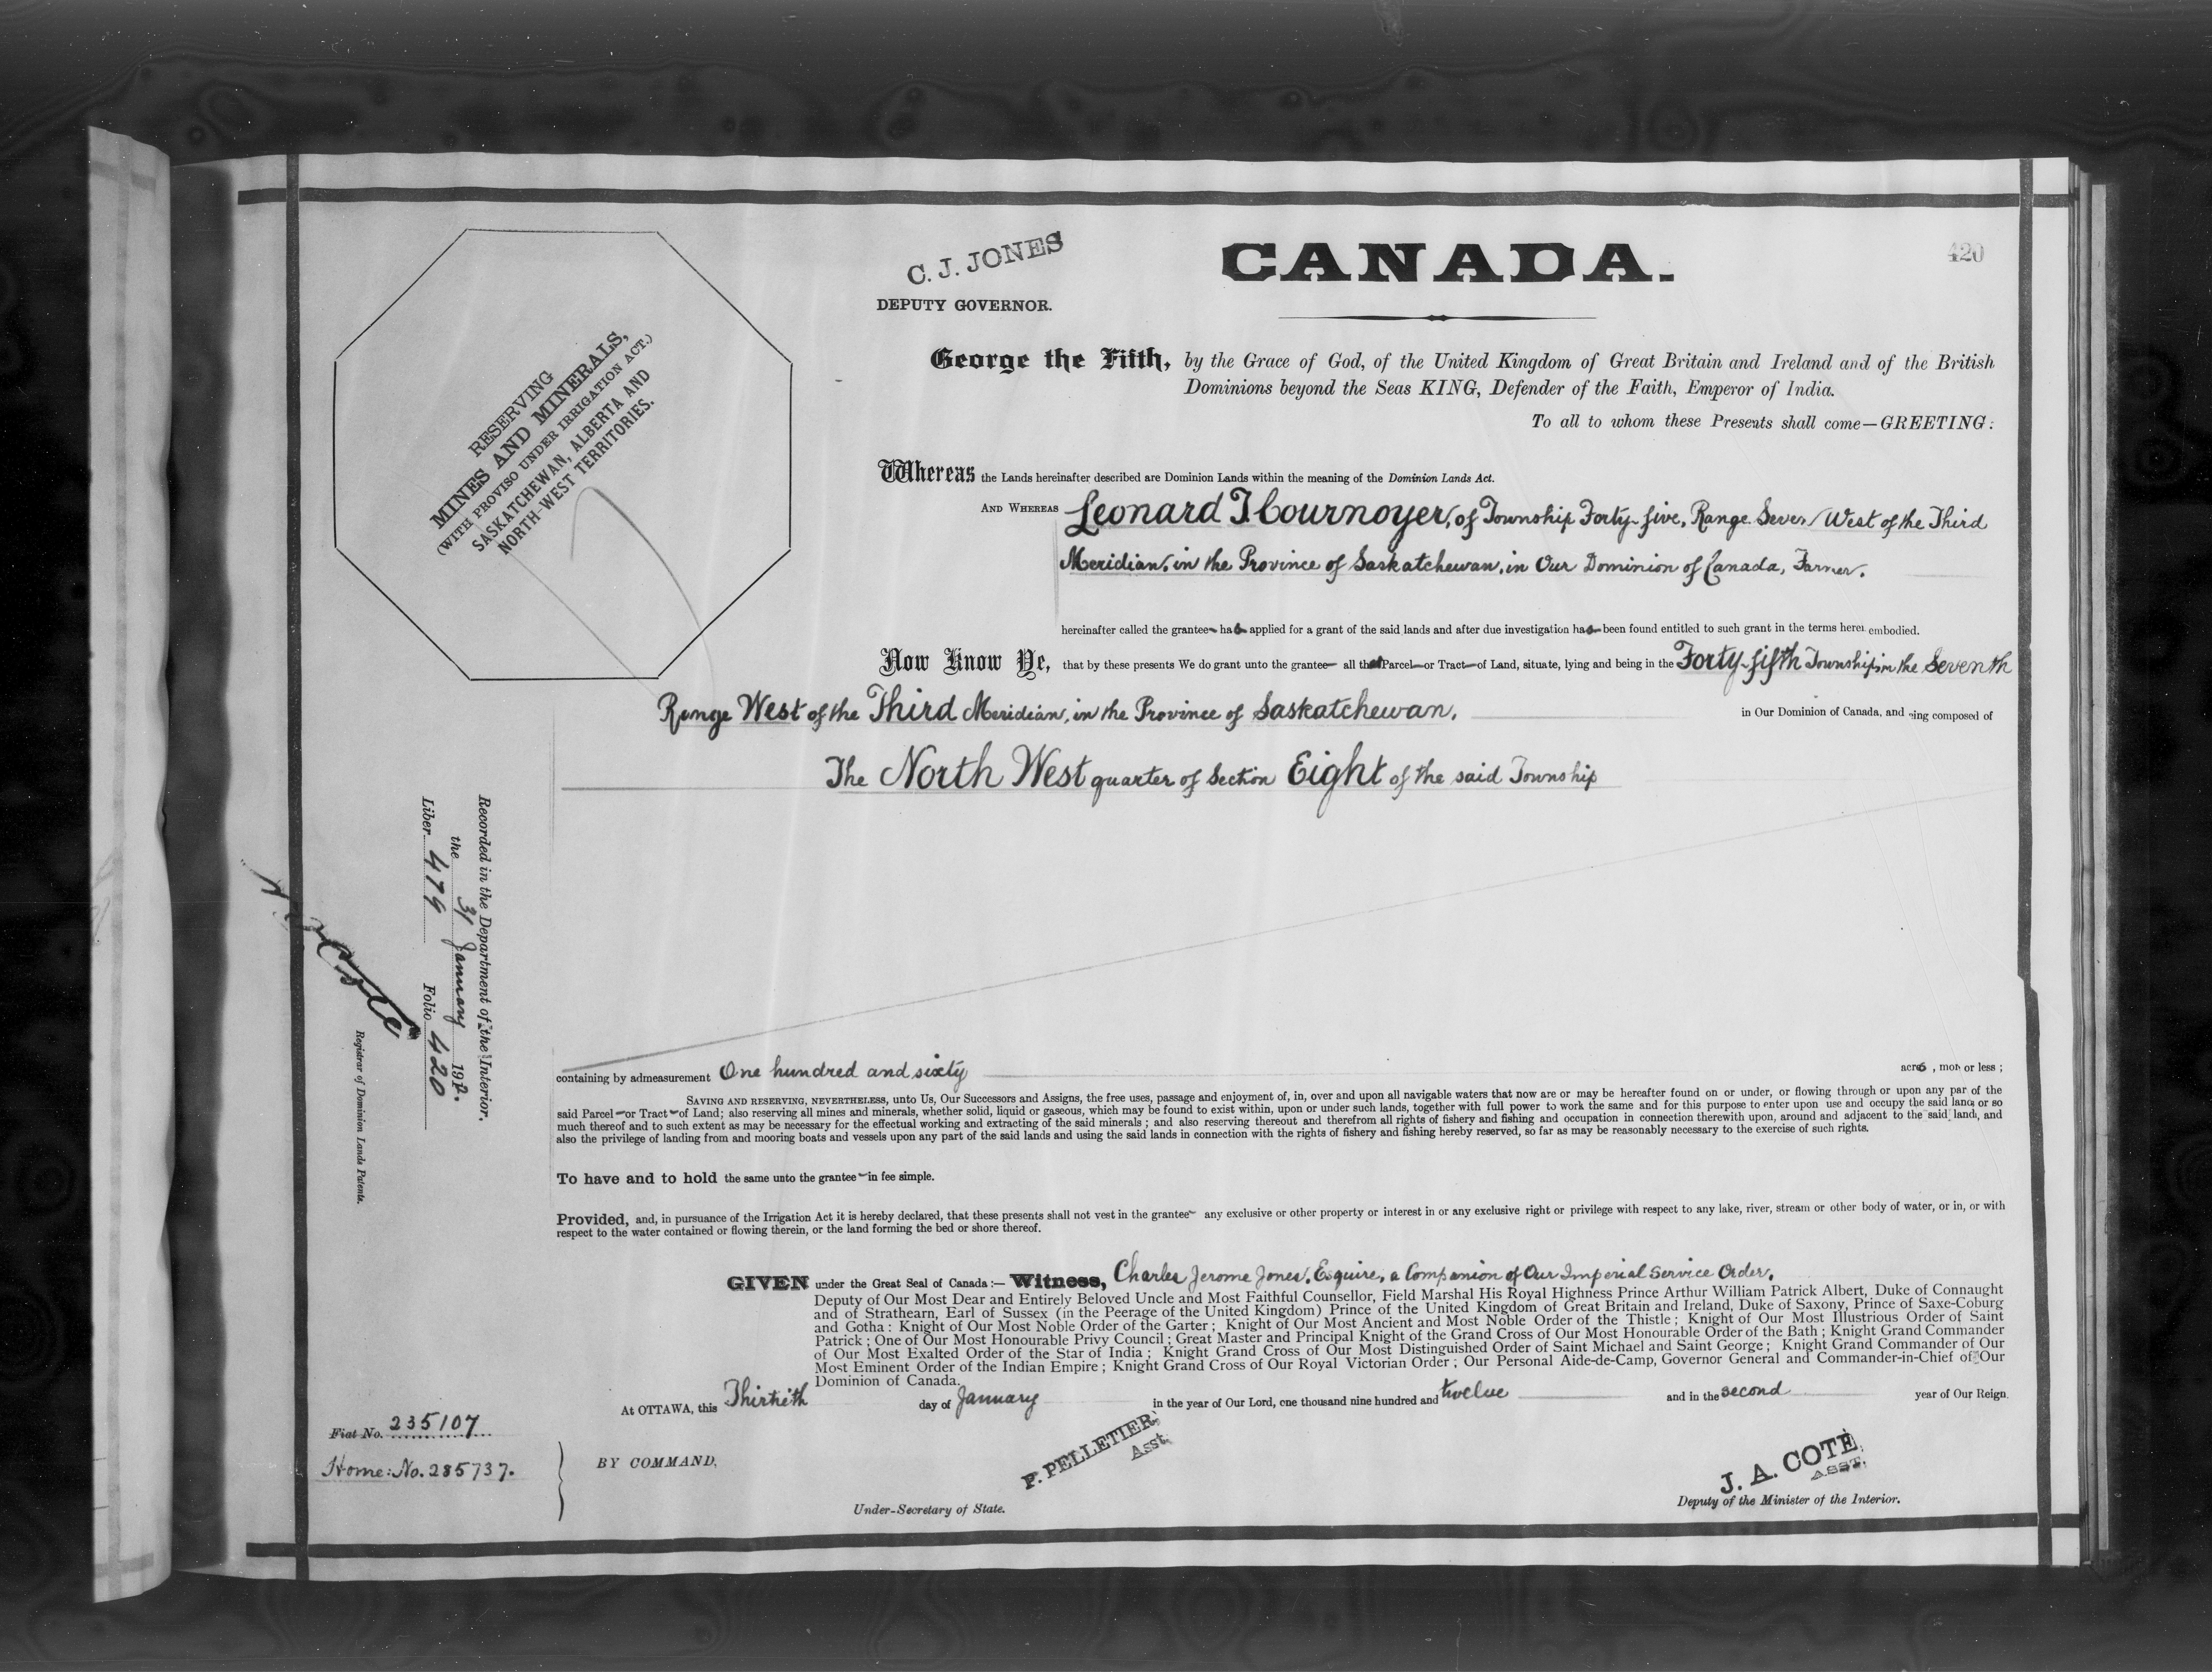 420
C. J. JONES
DEPUTY GOVERNOR.
CANADA.
George the Fifth, by the Grace of God, of the United Kingdom of Great Britain and Ireland and of the British
Dominions beyond the Seas KING, Defender of the Faith, Emperor of India.
To all to whom these Presents shall come—GREETING:
RESERVING
MINES AND MINERALS,
(WITH PROVISO UNDER IRRIGATION ACT.)
SASKATCHEWAN, ALBERTA AND
NORTH-WEST TERRITORIES.
Whereas the Lands hereinafter described are Dominion Lands within the meaning of the Dominion Lands Act.
AND WHEREAS Leonard J Cournoyer, of Township Forty-five, Range Seven West of the Third
Meridian, in the Province of Saskatchewan, in Our Dominion of Canada, Farmer.
hereinafter called the grantee has applied for a grant of the said lands and after due investigation has been found entitled to such grant in the terms herei embodied.
Now Know Ye, that by these presents We do grant unto the grantee all that Parcel or Tract of Land, situate, lying and being in the Forty-fifth Township in the Seventh
Range West of the Third Meridian, in the Province of Saskatchewan, in Our Dominion of Canada, and ing composed of
The North West quarter of Section Eight of the said Township
Recorded in the Department of the Interior,
the 31 January 1912.
Liber 479 Folio 420
Registrar of Dominion Lands Patents.
containing by admeasurement One hundred and sixty acres, more or less;
SAVING AND RESERVING, NEVERTHELESS, unto Us, Our Successors and Assigns, the free uses, passage and enjoyment of, in, over and upon all navigable waters that now are or may be hereafter found on or under, or flowing through or upon any par of the
said Parcel or Tract of Land; also reserving all mines and minerals, whether solid, liquid or gaseous, which may be found to exist within, upon or under such lands, together with full power to work the same and for this purpose to enter upon use and occupy the said land or so
much thereof and to such extent as may be necessary for the effectual working and extracting of the said minerals; and also reserving thereout and therefrom all rights of fishery and fishing and occupation in connection therewith upon, around and adjacent to the said land, and
also the privilege of landing from and mooring boats and vessels upon any part of the said lands and using the said lands in connection with the rights of fishery and fishing hereby reserved, so far as may be reasonably necessary to the exercise of such rights.
To have and to hold the same unto the grantee in fee simple.
Provided, and, in pursuance of the Irrigation Act it is hereby declared, that these presents shall not vest in the grantee any exclusive or other property or interest in or any exclusive right or privilege with respect to any lake, river, stream or other body of water, or in, or with
respect to the water contained or flowing therein, or the land forming the bed or shore thereof.
GIVEN under the Great Seal of Canada:— Witness, Charles Jerome Jones, Esquire, a Companion of Our Imperial Service Order,
Deputy of Our Most Dear and Entirely Beloved Uncle and Most Faithful Counsellor, Field Marshal His Royal Highness Prince Arthur William Patrick Albert, Duke of Connaught
and of Strathearn, Earl of Sussex (in the Peerage of the United Kingdom) Prince of the United Kingdom of Great Britain and Ireland, Duke of Saxony, Prince of Saxe-Coburg
and Gotha: Knight of Our Most Noble Order of the Garter; Knight of Our Most Ancient and Most Noble Order of the Thistle; Knight of Our Most Illustrious Order of Saint
Patrick; One of Our Most Honourable Privy Council; Great Master and Principal Knight of the Grand Cross of Our Most Honourable Order of the Bath; Knight Grand Commander
of Our Most Exalted Order of the Star of India; Knight Grand Cross of Our Most Distinguished Order of Saint Michael and Saint George; Knight Grand Commander of Our
Most Eminent Order of the Indian Empire; Knight Grand Cross of Our Royal Victorian Order; Our Personal Aide-de-Camp, Governor General and Commander-in-Chief of Our
Dominion of Canada.
At OTTAWA, this Thirtieth day of January in the year of Our Lord, one thousand nine hundred and twelve and in the second year of Our Reign.
Fiat No. 235107
Home: No. 285737.
BY COMMAND,
P. PELLETIER
Asst.
Under-Secretary of State.
J. A. COTÉ,
ASST.
Deputy of the Minister of the Interior.